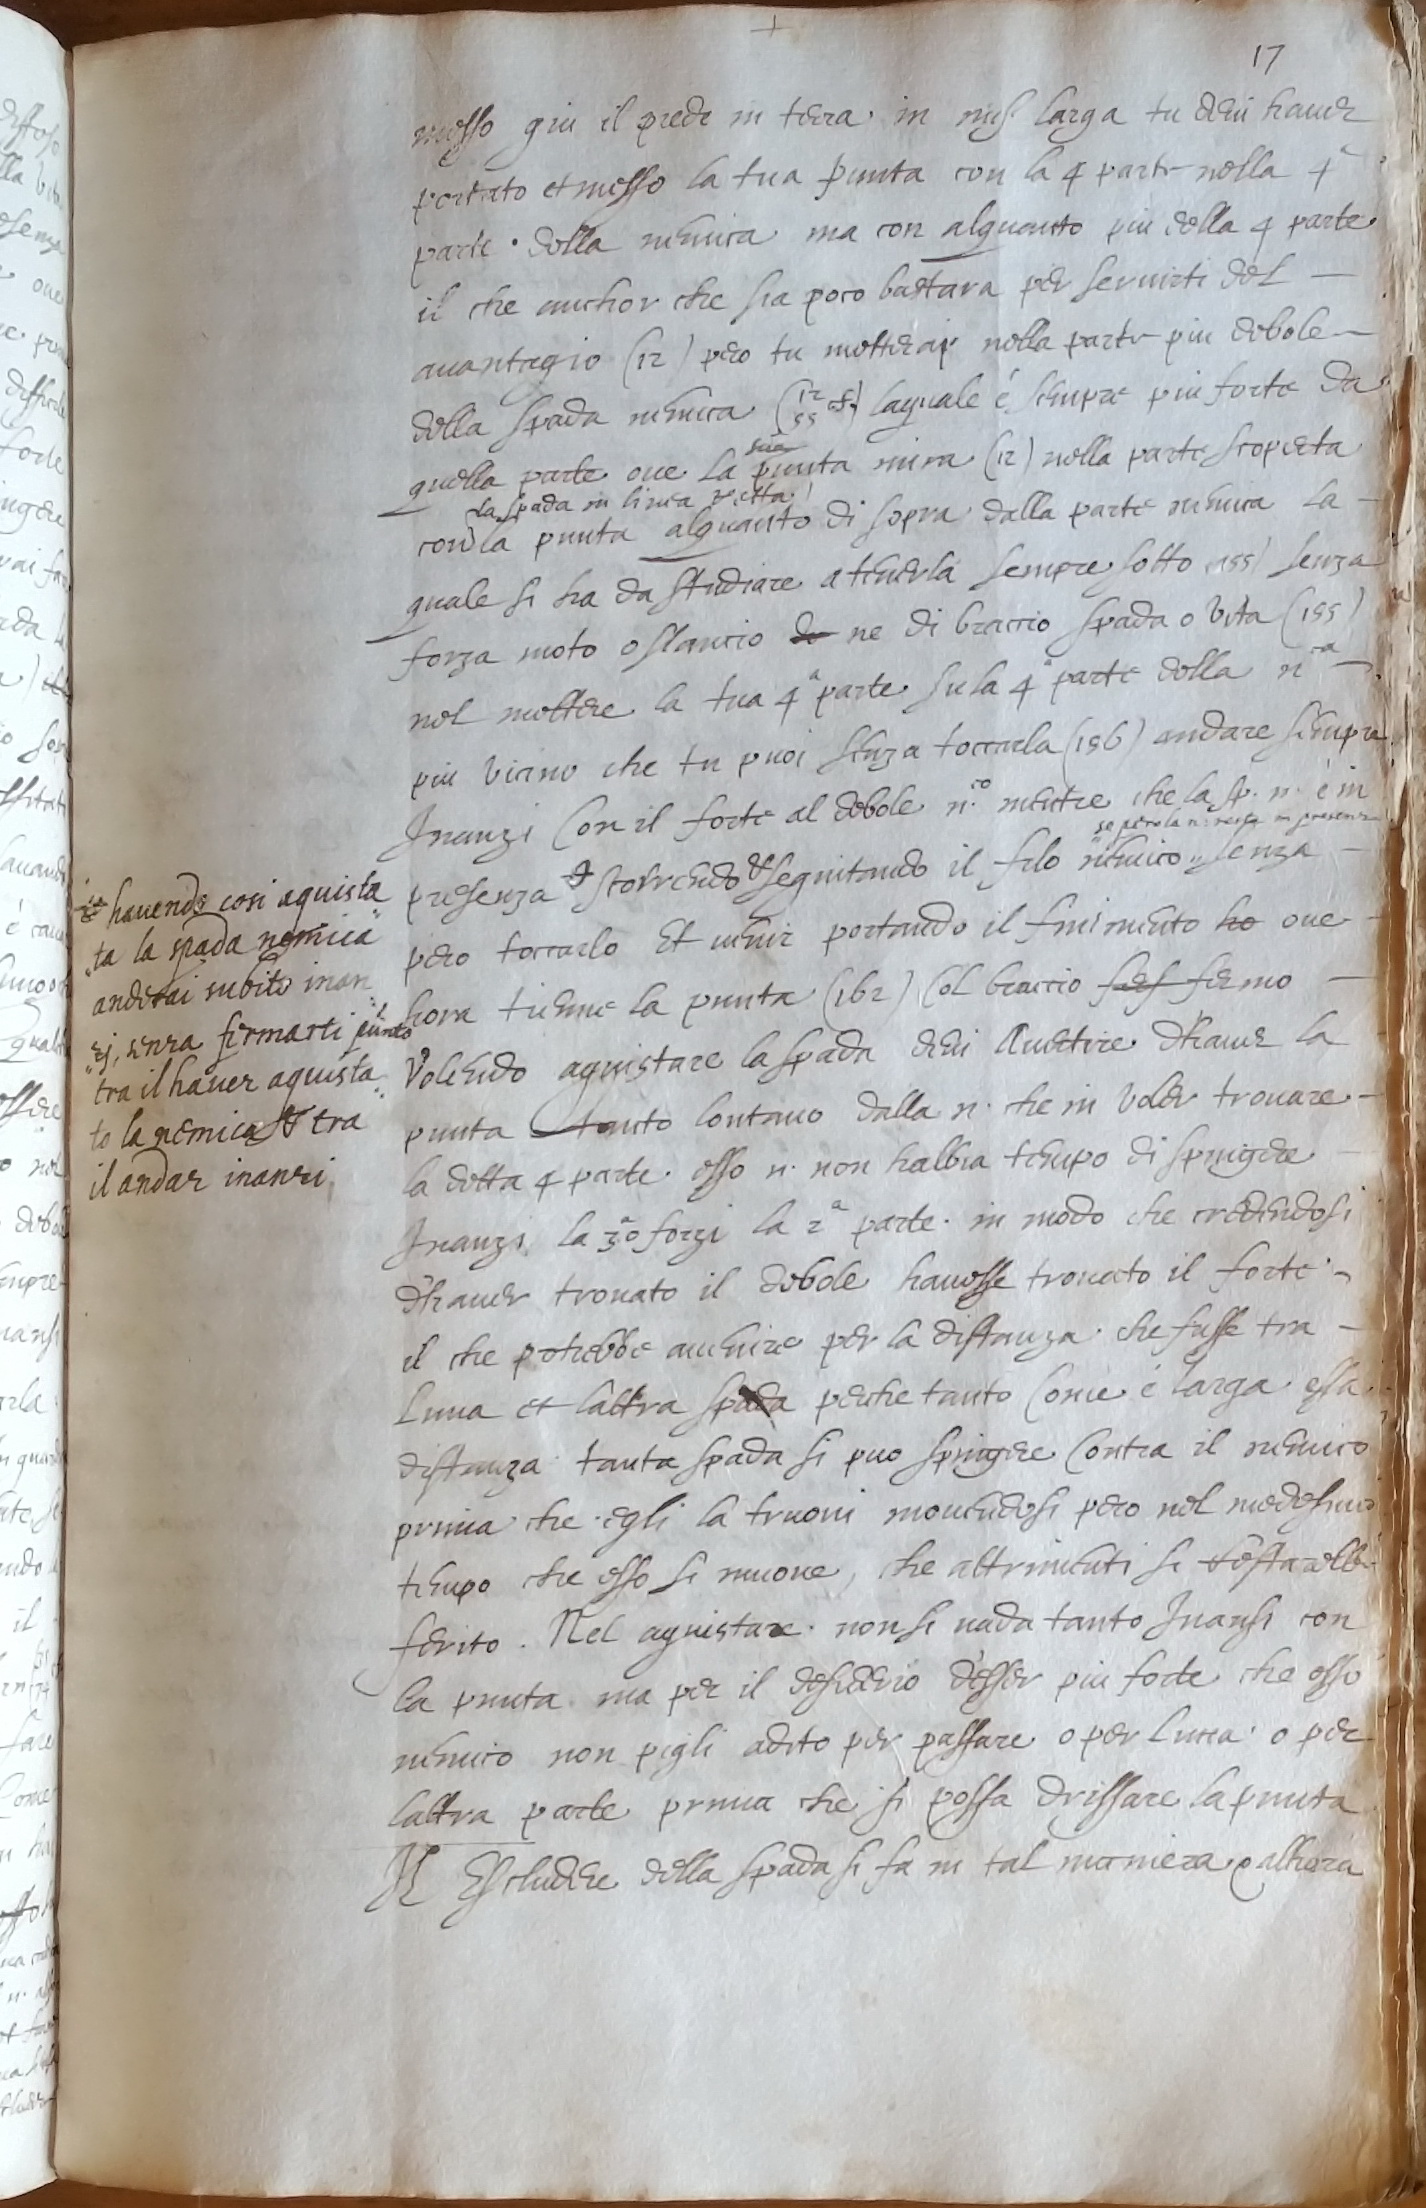 17
messo giu il piede in terra in mis larga tu deui hauer
portato et messo la tua punta con la 4 parte nella 4ª
parte della nemica ma con alquanto piu della 4 parte
il che anchor che sia poco bastara per seruirti del
auantagio (12) pero tu metterai nella parte piu debole
della spada nemica laquale é sempre piu forte da
quella parte oue la sua punta mira (12) nella parte scoperta
la spada in linea retta
con la punta alquanto di sopra dalla parte nemica la
quale si ha da studiare a tenerla sempre sotto (155) senza
forza moto o slancio de ne di braccio spada o vita (155)
nel mettere la tua 4ª parte su la 4ª parte della n.ca
piu vicino che tu puoi senza toccarla (156) andare sempre
Inanzi con il forte al debole n.co mentre che la sp. n. è in
se pero la n. resta in presenza
presenza et scorrendo et seguitando il filo nemico senza
pero toccarlo et venir portando il finimento ho oue
hora tienne la punta (162) col braccio fermo
Volendo aquistare la spada deui auertire d'hauer la
punta tanto lontano dalla n. che in voler trouare
la detta 4 parte esso n. non habbia tempo di spingere
Inanzi la 3ª o forzi la 2ª parte in modo che credendosi
d'hauer trouato il debole hauesse trouato il forte
il che potrebbe auenire per la distanza che fusse tra
luna et laltra spada perche tanto come é larga essa
distanza tanta spada si puo spingere contra il nemico
prima che egli la truoui mouendosi pero nel medesimo
tempo che esso si muoue, che altrimenti si restarebbe
ferito. Nel aquistare non si uada tanto Inansi con
la punta ma per il desiderio d'esser piu forte che esso
nemico non pigli adito per passare o per luna o per
laltra parte prima che si possa drissare la punta
Il Escludere della spada si fa in tal maniera
et hauendo cosi aquista
ta la spada nemica
anderai subito inan
zi, senza fermarti punto
tra il hauer aquista
to la nemica et tra
il andar inanzi